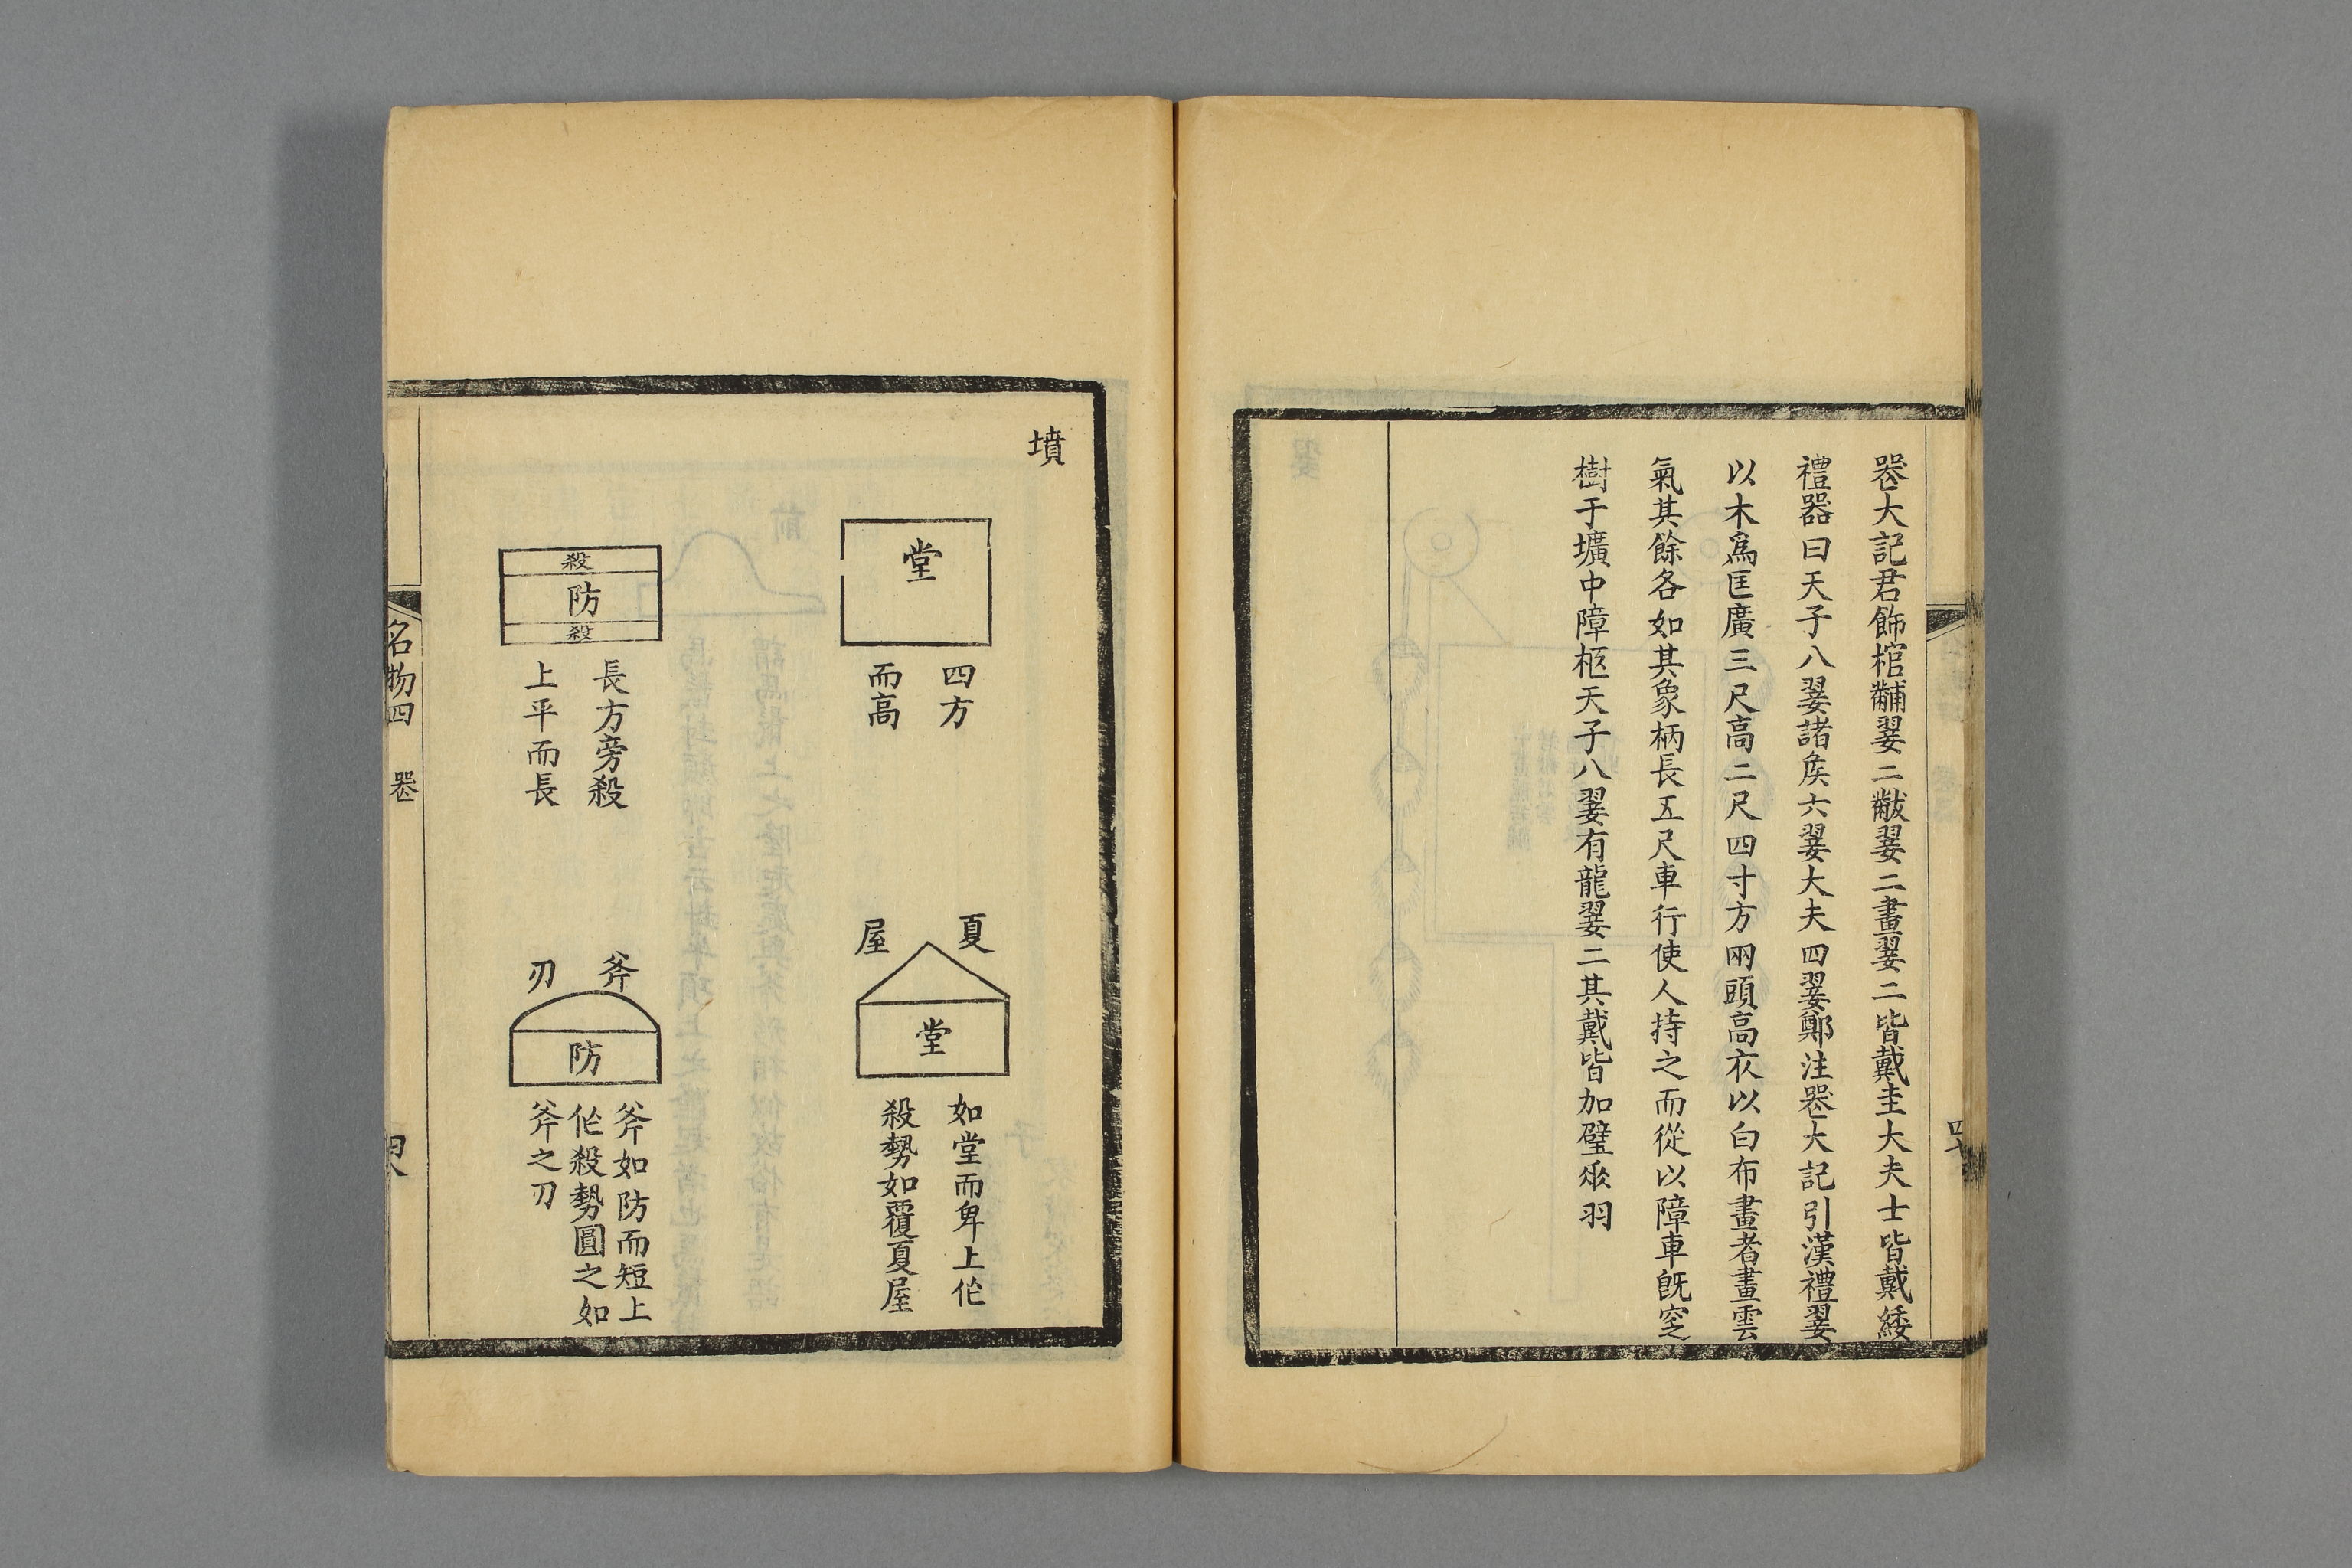 喪大記君飾棺黼翣二黻翣二畫翣二皆戴圭大夫士皆戴綏
禮器曰天子八翣諸矦六翣大夫四翣鄭注喪大記引漢禮翣
以木爲匡廣三尺高二尺四寸方兩頭高衣以白布畫者畫雲
氣其餘各如其象柄長五尺車行使人持之而從以障車旣窆
樹于壙中障柩天子八翣有龍翣二其戴皆加璧𠂹羽
墳
堂
四方
而高
夏
屋
堂
如堂而卑上作
殺勢如覆夏屋
殺
防
殺
長方旁殺
上平而長
斧
刃
防
斧如防而短上
作殺勢圓之如
斧之刃
名物四
喪